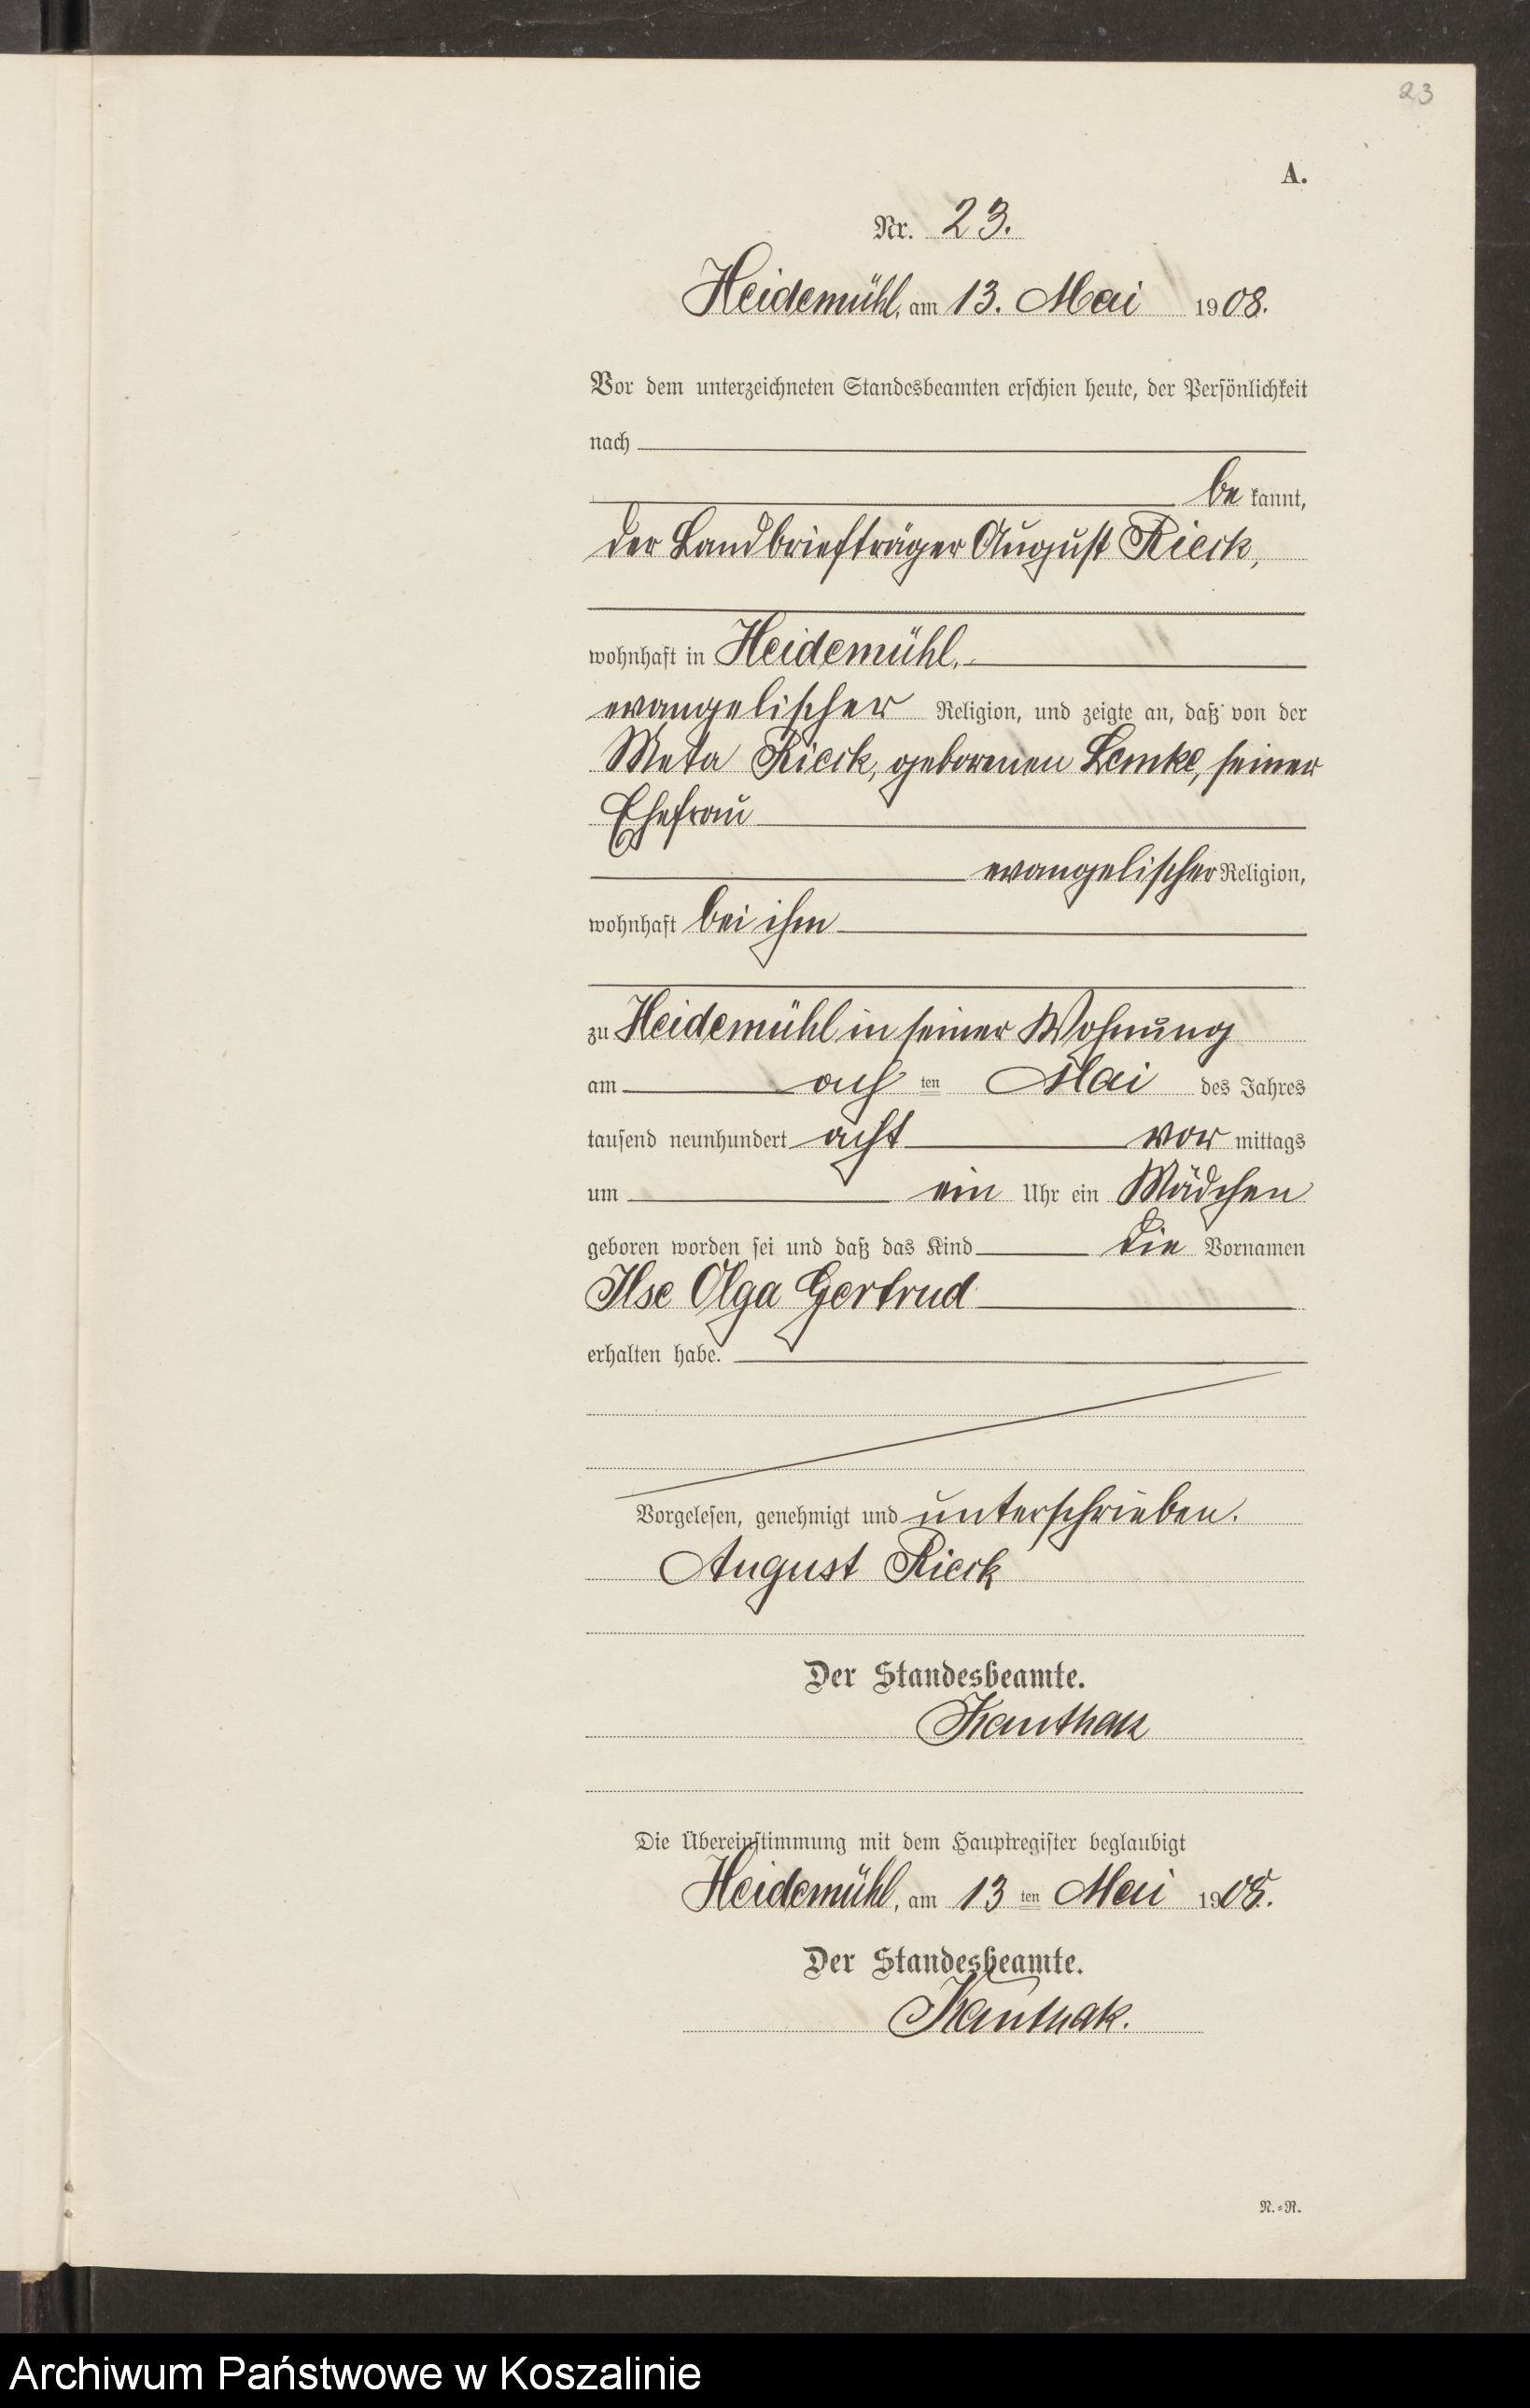 23
A.
Nr. 23.
Heidemühl, am 13. Mai 1908.
Vor dem unterzeichneten Standesbeamten erschien heute, der Persönlichkeit
nach
be kannt,
der Landbriefträger August Rieck,
wohnhaft in Heidemühl,
evangelischer Religion, und zeigte an, daß von der
Meta Rieck, geborenen Lemke, seiner
Ehefrau
evangelischer Religion,
wohnhaft bei ihm
zu Heidemühl in seiner Wohnung
am ach ten Mai des Jahres
tausend neunhundert acht vor mittags
um ein Uhr ein Mädchen
geboren worden sei und daß das Kind die Vornamen
Ilse Olga Gertrud
erhalten habe.
Vorgelesen, genehmigt und unterschrieben.
August Rieck
Der Standesbeamte.
Kanthak
Die Übereinstimmung mit dem Hauptregister beglaubigt
Heidemühl, am 13 ten Mai 1908.
Der Standesbeamte.
Kanthak.
N.=R.
Archiwum Państwowe w Koszalinie